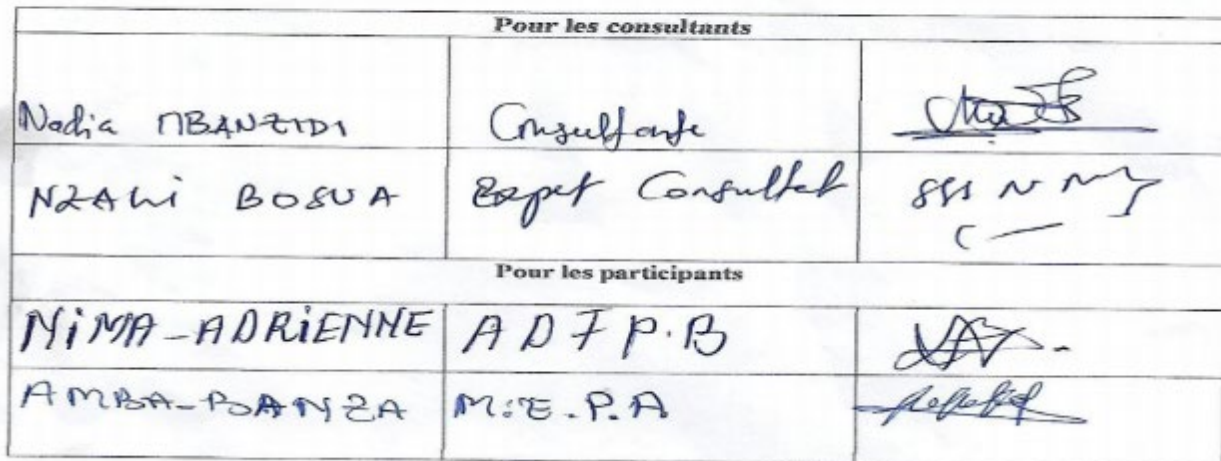 Pour les consultants
Nadia MBANZIDI Consultante
NZALI BOSUA Expet Consultat
Pour les participants
NIMA-ADRIENNE ADFP.B
AMBA-BANZA M.E.P.A